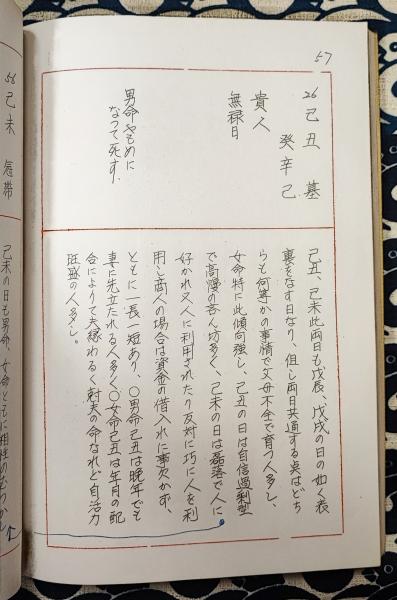 57
26 己丑 墓
癸辛己
貴人
無禄日
男命やもめに
なって死す、
己丑、己未此両日も戊辰、戊戌の日の如く表
裏をなす日なり、但し両日共通する点はどち
らも何等かの事情で父母不全で育つ人多し、
女命特に此傾向強し、己丑の日は自信過剰型
で高慢の呑ん坊多く、己未の日は磊落で人に
好かれ又人に利用されたり反対に巧に人を利
用し商人の場合は資金の借入れに事欠かず、
ともに一長一短あり、〇男命己丑は晩年でも
妻に先立たれる人多く〇女命己丑は年月の配
合によりて夫縁わるく尅夫の命なれど自活力
旺盛の人多し。
56 己未 冠帯
己未の日も男命、女命ともに相性のむつかし